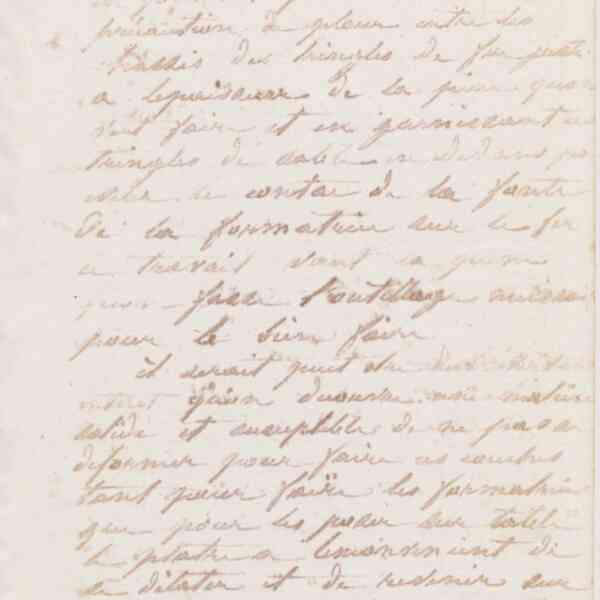 précaution de placer contre les
chassis des tringles de fer juste
a lepaisseur de la piece quon
veut faire et en garnissant les
tringles de sable en dedans pour
eviter le contac de la fonte
Si la formation sur le fer
ce travail vaut la peine
quon fasse l'outillage
pour le bien faire
il serait peut etre
quon une matière
solide et suceptible de ne pas se
deformer pour faire ces couches
tant pour faire les
que pour les poser sur table
le platre a linconvenient de
se dilater et de revenir sur